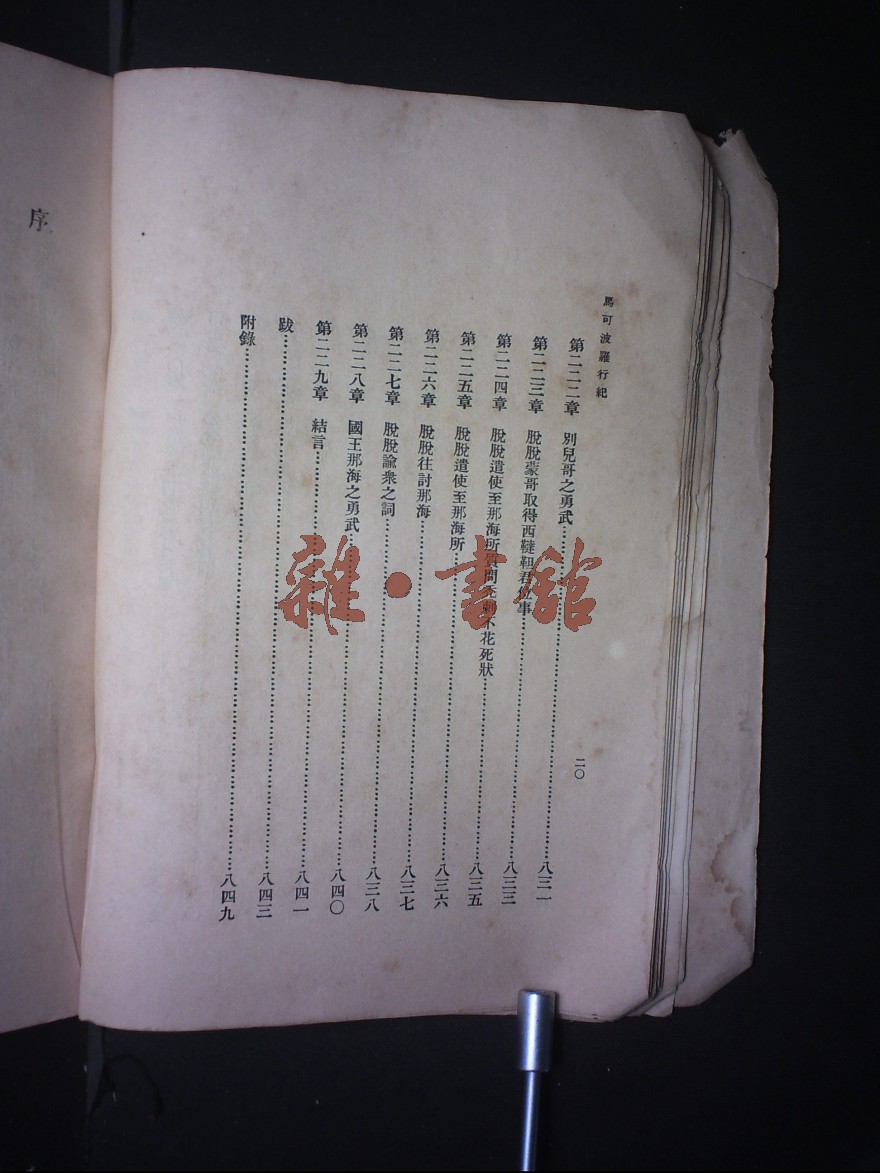 馬可波羅行紀 二〇
第二二二章 別兒哥之勇武……八三一
第二二三章 脫脫蒙哥取得西韃靼君位事……八三三
第二二四章 脫脫遣使至那海所質問剌不花死狀……八三五
第二二五章 脫脫遣使至那海所……八三六
第二二六章 脫脫往討那海……八三七
第二二七章 脫脫諭衆之詞……八三八
第二二八章 國王那海之勇武……八四〇
第二二九章 結言……八四一
跋……八四三
附錄……八四九
序
雜·書館